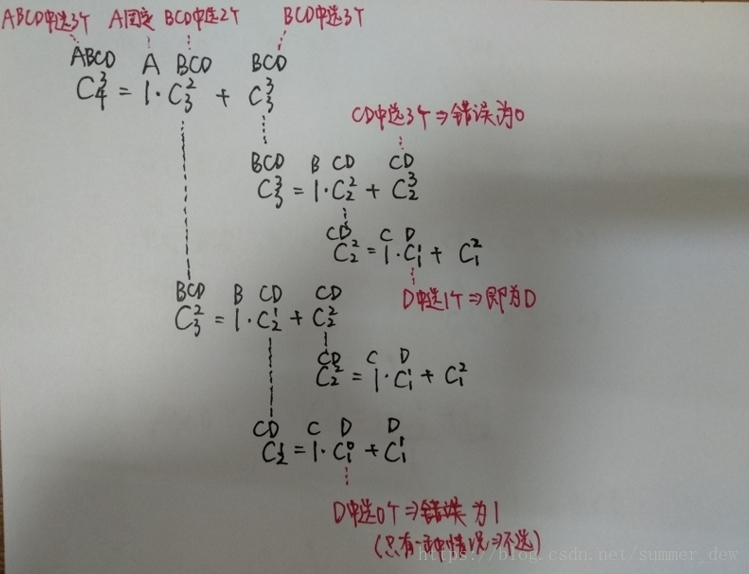 ABCD中选3个 A固定 BCD中选2个 BCD中选3个
ABCD A BCD BCD
C₄³ = 1·C₃² + C₃³
CD中选3个⇒错误为0
BCD B CD CD
C₃³ = 1·C₂² + C₂³
CD C D
C₂² = 1·C₁¹ + C₁²
D中选1个⇒即为D
BCD B CD CD
C₃² = 1·C₂¹ + C₂²
CD C D
C₂² = 1·C₁¹ + C₁²
CD C D D
C₂¹ = 1·C₁⁰ + C₁¹
D中选0个⇒错误为1
(只有一种情况⇒不选)
https://blog.csdn.net/summer_dew